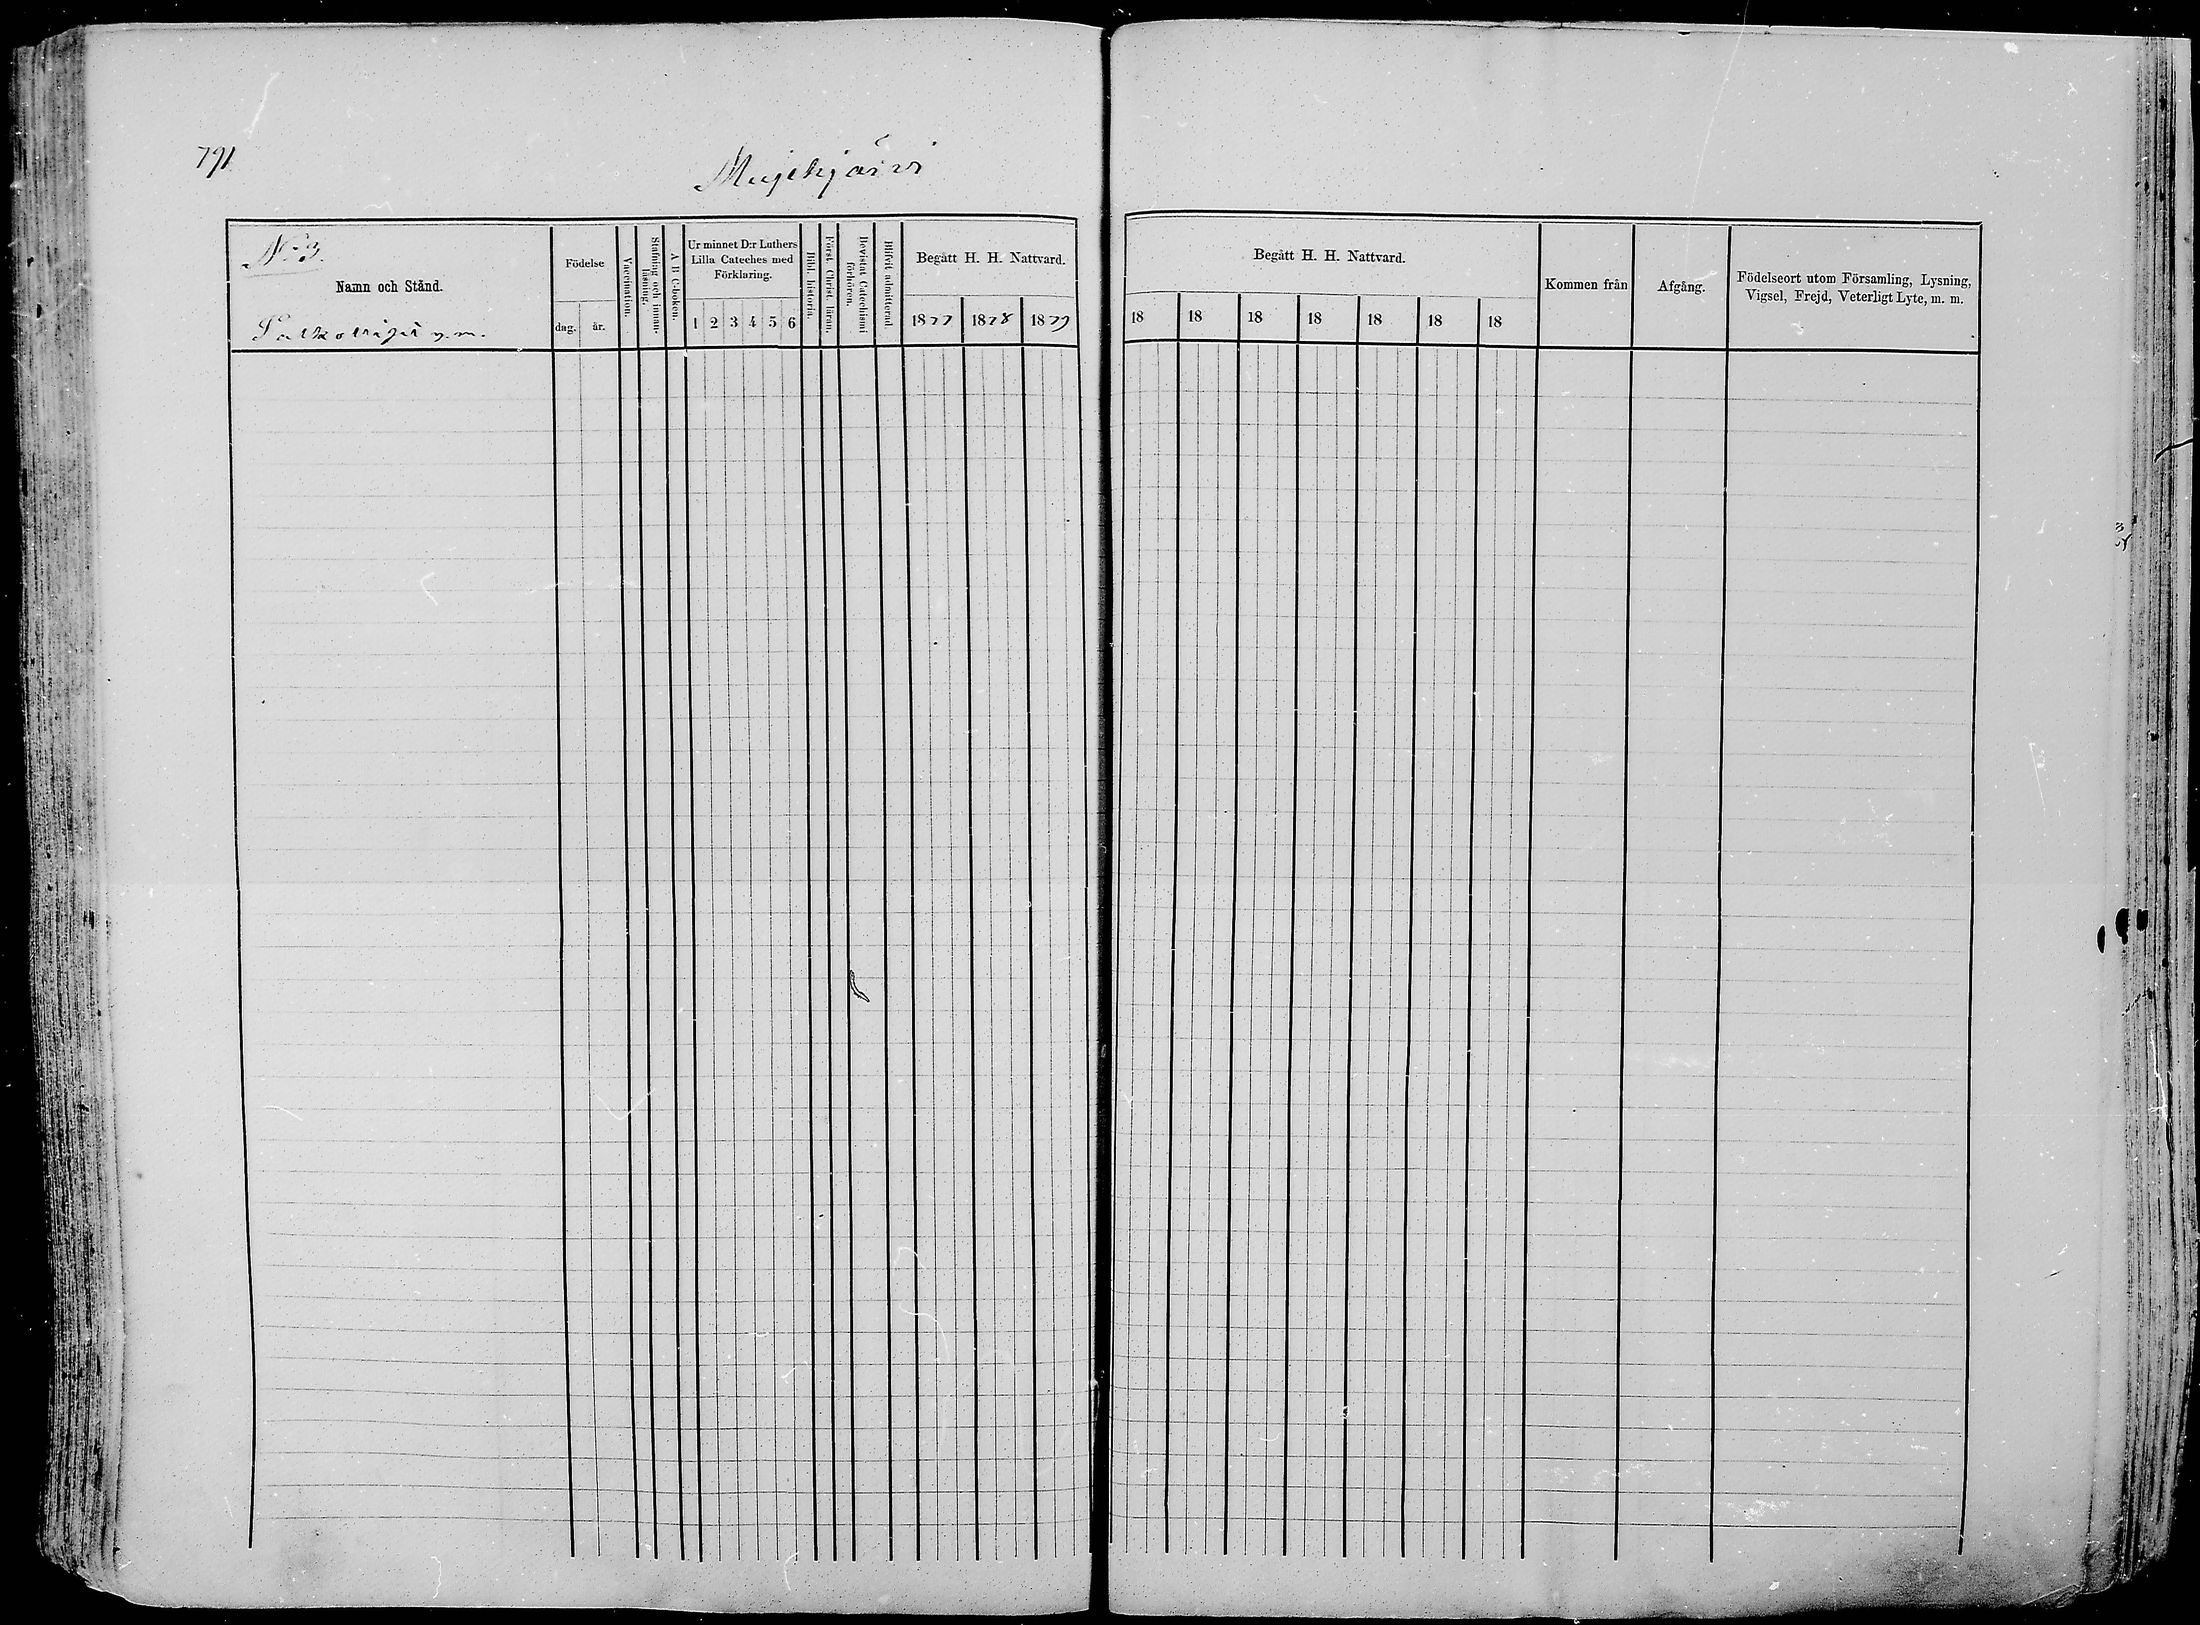 791
Mujehjärvi
No 3.
Namn och Stånd.
Födelse
dag. år.
Vaccination.
Stafning och innanläsning.
A B C-boken.
Ur minnet D:r Luthers Lilla Cateches med Förklaring.
1 2 3 4 5 6
Bibl. historia.
Först. Christ. läran.
Bevistat Catechismi förhören.
Blifvit admitterad.
Begått H. H. Nattvard.
1877 1878 1879
Begått H. H. Nattvard.
18 18 18 18 18 18 18
Kommen från
Afgång.
Födelseort utom Församling, Lysning, Vigsel, Frejd, Veterligt Lyte, m. m.